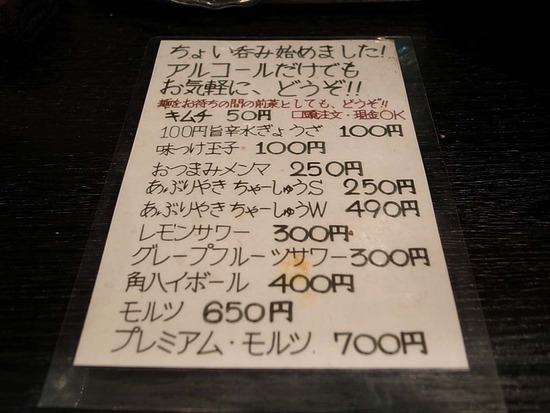 ちょい呑み始めました!
アルコールだけでも
お気軽に、どうぞ!!
麺をお待ちの間の前菜としても、どうぞ!!
キムチ 50円 口頭注文・現金OK
100円旨辛水ぎょうざ 100円
味つけ玉子 100円
おつまみメンマ 250円
あぶりやきちゃーしゅうS 250円
あぶりやきちゃーしゅうW 490円
レモンサワー 300円
グレープフルーツサワー300円
角ハイボール 400円
モルツ 650円
プレミアム・モルツ 700円